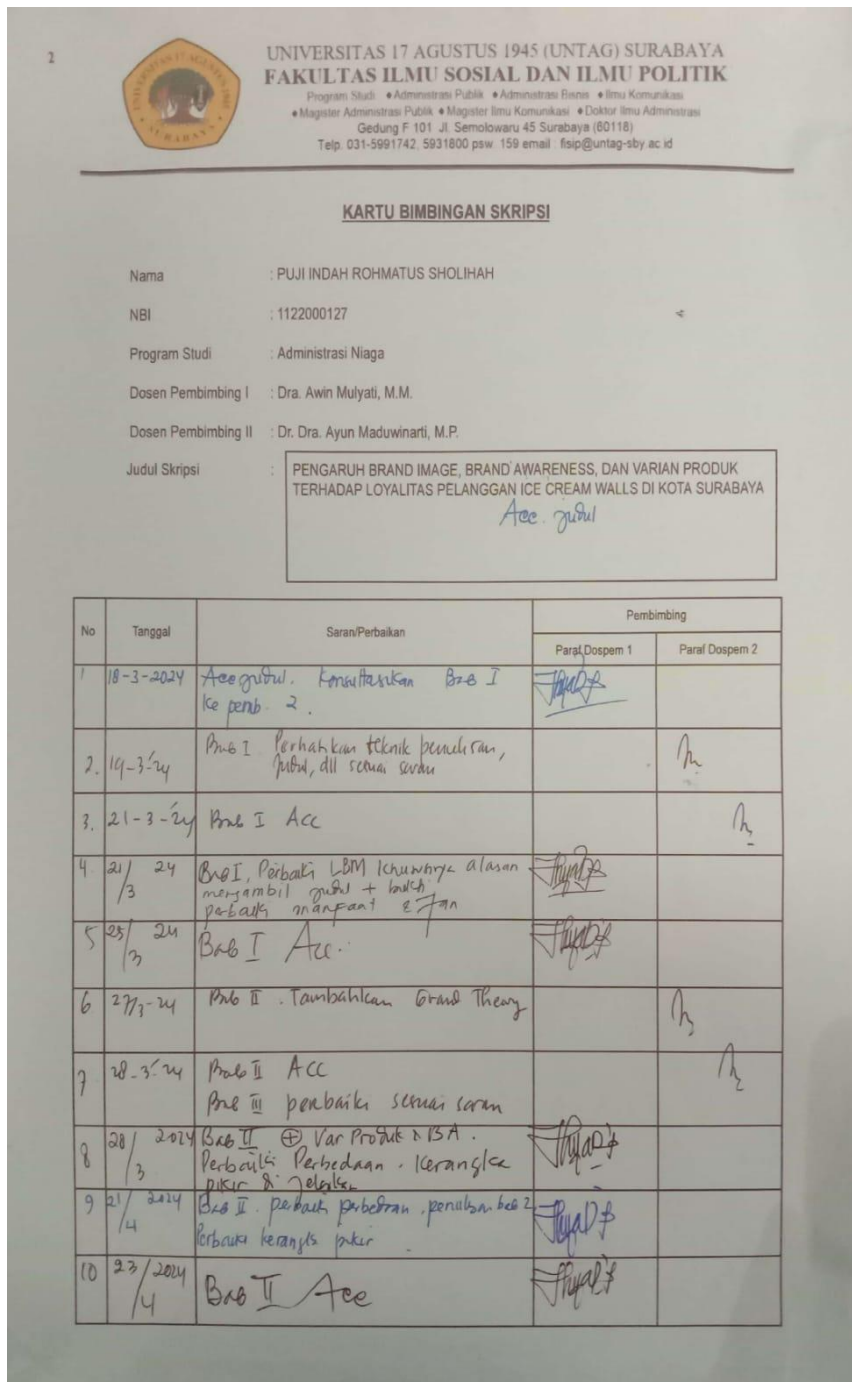 2
UNIVERSITAS 17 AGUSTUS 1945 (UNTAG) SURABAYA
FAKULTAS ILMU SOSIAL DAN ILMU POLITIK
Program Studi ♦Administrasi Publik ♦Administrasi Bisnis ♦Ilmu Komunikasi
♦Magister Administrasi Publik ♦Magister Ilmu Komunikasi ♦Doktor Ilmu Administrasi
Gedung F 101 Jl. Semolowaru 45 Surabaya (60118)
Telp. 031-5991742, 5931800 psw. 159 email : fisip@untag-sby.ac.id
KARTU BIMBINGAN SKRIPSI
Nama : PUJI INDAH ROHMATUS SHOLIHAH
NBI : 1122000127
Program Studi : Administrasi Niaga
Dosen Pembimbing I : Dra. Awin Mulyati, M.M.
Dosen Pembimbing II : Dr. Dra. Ayun Maduwinarti, M.P.
Judul Skripsi : PENGARUH BRAND IMAGE, BRAND AWARENESS, DAN VARIAN PRODUK
TERHADAP LOYALITAS PELANGGAN ICE CREAM WALLS DI KOTA SURABAYA
Acc. judul
No Tanggal Saran/Perbaikan Pembimbing
Paraf Dospem 1 Paraf Dospem 2
1 18-3-2024 Acc judul. Konsultasikan Bab I
ke pemb. 2.
2. 19-3-'24 Bab I Perhatikan teknik penulisan,
judul, dll sesuai saran
3. 21-3-'24 Bab I Acc
4 21/3 24 Bab I, Perbaiki LBM khususnya alasan
mengambil judul +
perbaiki manfaat &
5 25/3 24 Bab I Acc.
6 27/3-24 Bab II. Tambahkan Grand Theory
7 28-3-'24 Bab II ACC
Bab III perbaiki sesuai saran
8 28/3 2024 Bab II + Var Produk & BA.
Perbaiki Perbedaan. Kerangka
pikir & jelaskan
9 21/4 2024 Bab II. perbaiki perbedaan, penulisan bab 2
Perbaiki kerangka pikir
10 23/4 2024 Bab II Acc